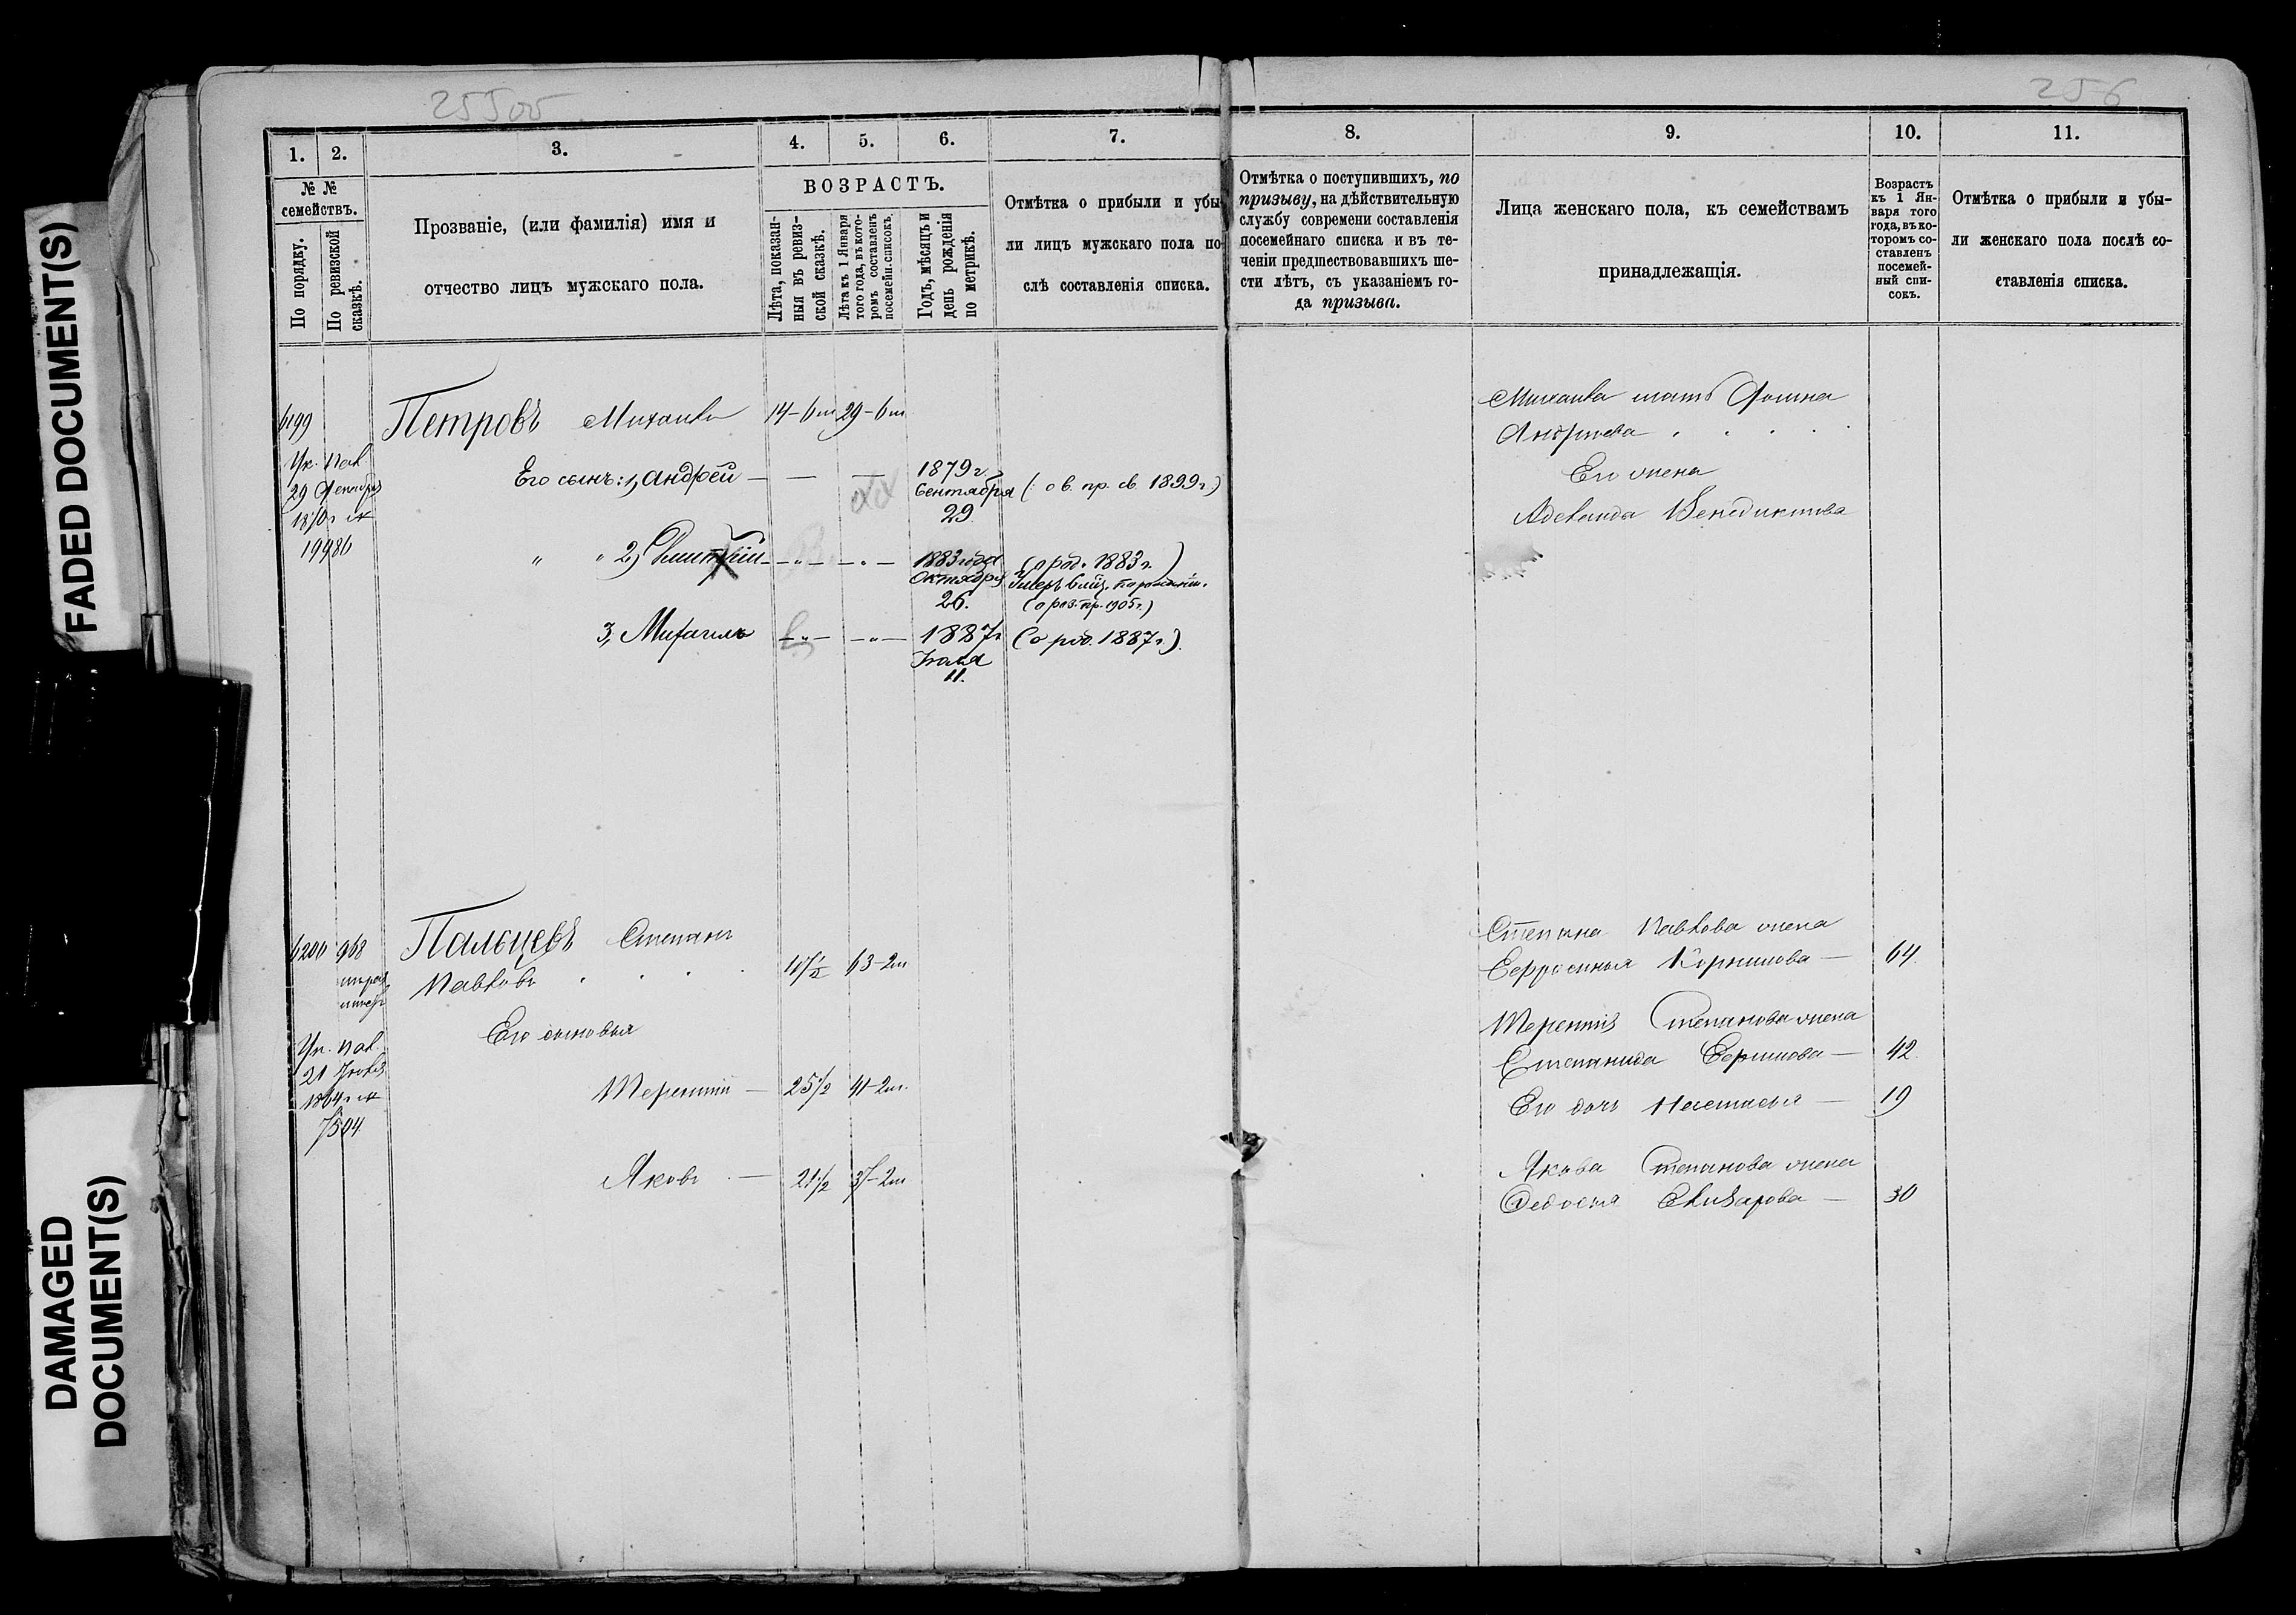 FADED DOCUMENT(S)
DAMAGED
DOCUMENT(S)
255об
256
1.
2.
3.
4.
5.
6.
7.
8.
9.
10.
11.
№ №
семействъ.
По порядку.
По ревизской
сказкѣ.
Прозваніе, (или фамилія) имя и
отчество лицъ мужскаго пола.
ВОЗРАСТЪ.
Лѣта, показан-
ныя въ ревиз-
ской сказкѣ.
Лѣта къ 1 Января
того года, въ кото-
ромъ составленъ
посемейн. списокъ.
Годъ, мѣсяцъ и
день рожденія
по метрикѣ.
Отмѣтка о прибыли и убы-
ли лицъ мужскаго пола по-
слѣ составленія списка.
Отмѣтка о поступившихъ, по
призыву, на дѣйствительную
службу современи составленія
посемейнаго списка и въ те-
ченіи предшествовавшихъ ше-
сти лѣтъ, съ указаніемъ го-
да призыва.
Лица женскаго пола, къ семействамъ
принадлежащія.
Возрастъ
къ 1 Ян-
варя того
года, въ ко-
торомъ со-
ставленъ
посемей-
ный спи-
сокъ.
Отмѣтка о прибыли и убы-
ли женскаго пола послѣ со-
ставленія списка.
6199
Ук. Пал.
29 Декабря
1870 г №
19986
Петровъ Михаилъ 14-6 м 29-6 м
Его сынъ: 1) Андрей — — — 1879 г. Сентября 29 (: о в. пр. св. 1899 г.)
" " 2) Дмитрій — " — — " — 1883 года Октября 26. (о род. 1883 г.)
(о раз. пр. 1905 г.)
3, Михаилъ — " — — " — 1887 г Іюля 11. (о род. 1887 г.)
Михаила мать Фомина
Андреева
Его жена
Аделаида Венедиктова
6200 968
Ук. Пал.
21 Іюля
1864 г №
7504
Пальцевъ Степанъ
Павловъ 63-2 м
Его сыновья
Терентій — 25 1/2 41-2 м.
Яковъ — 21 1/2 37-2 м
Степана Павлова жена
Ефросинья Корнилова — 64.
Терентія Степанова жена
Степанида Ефимова — 42.
Его дочь Настасья — 19
Якова Степанова жена
Федосья Елизарова — 30